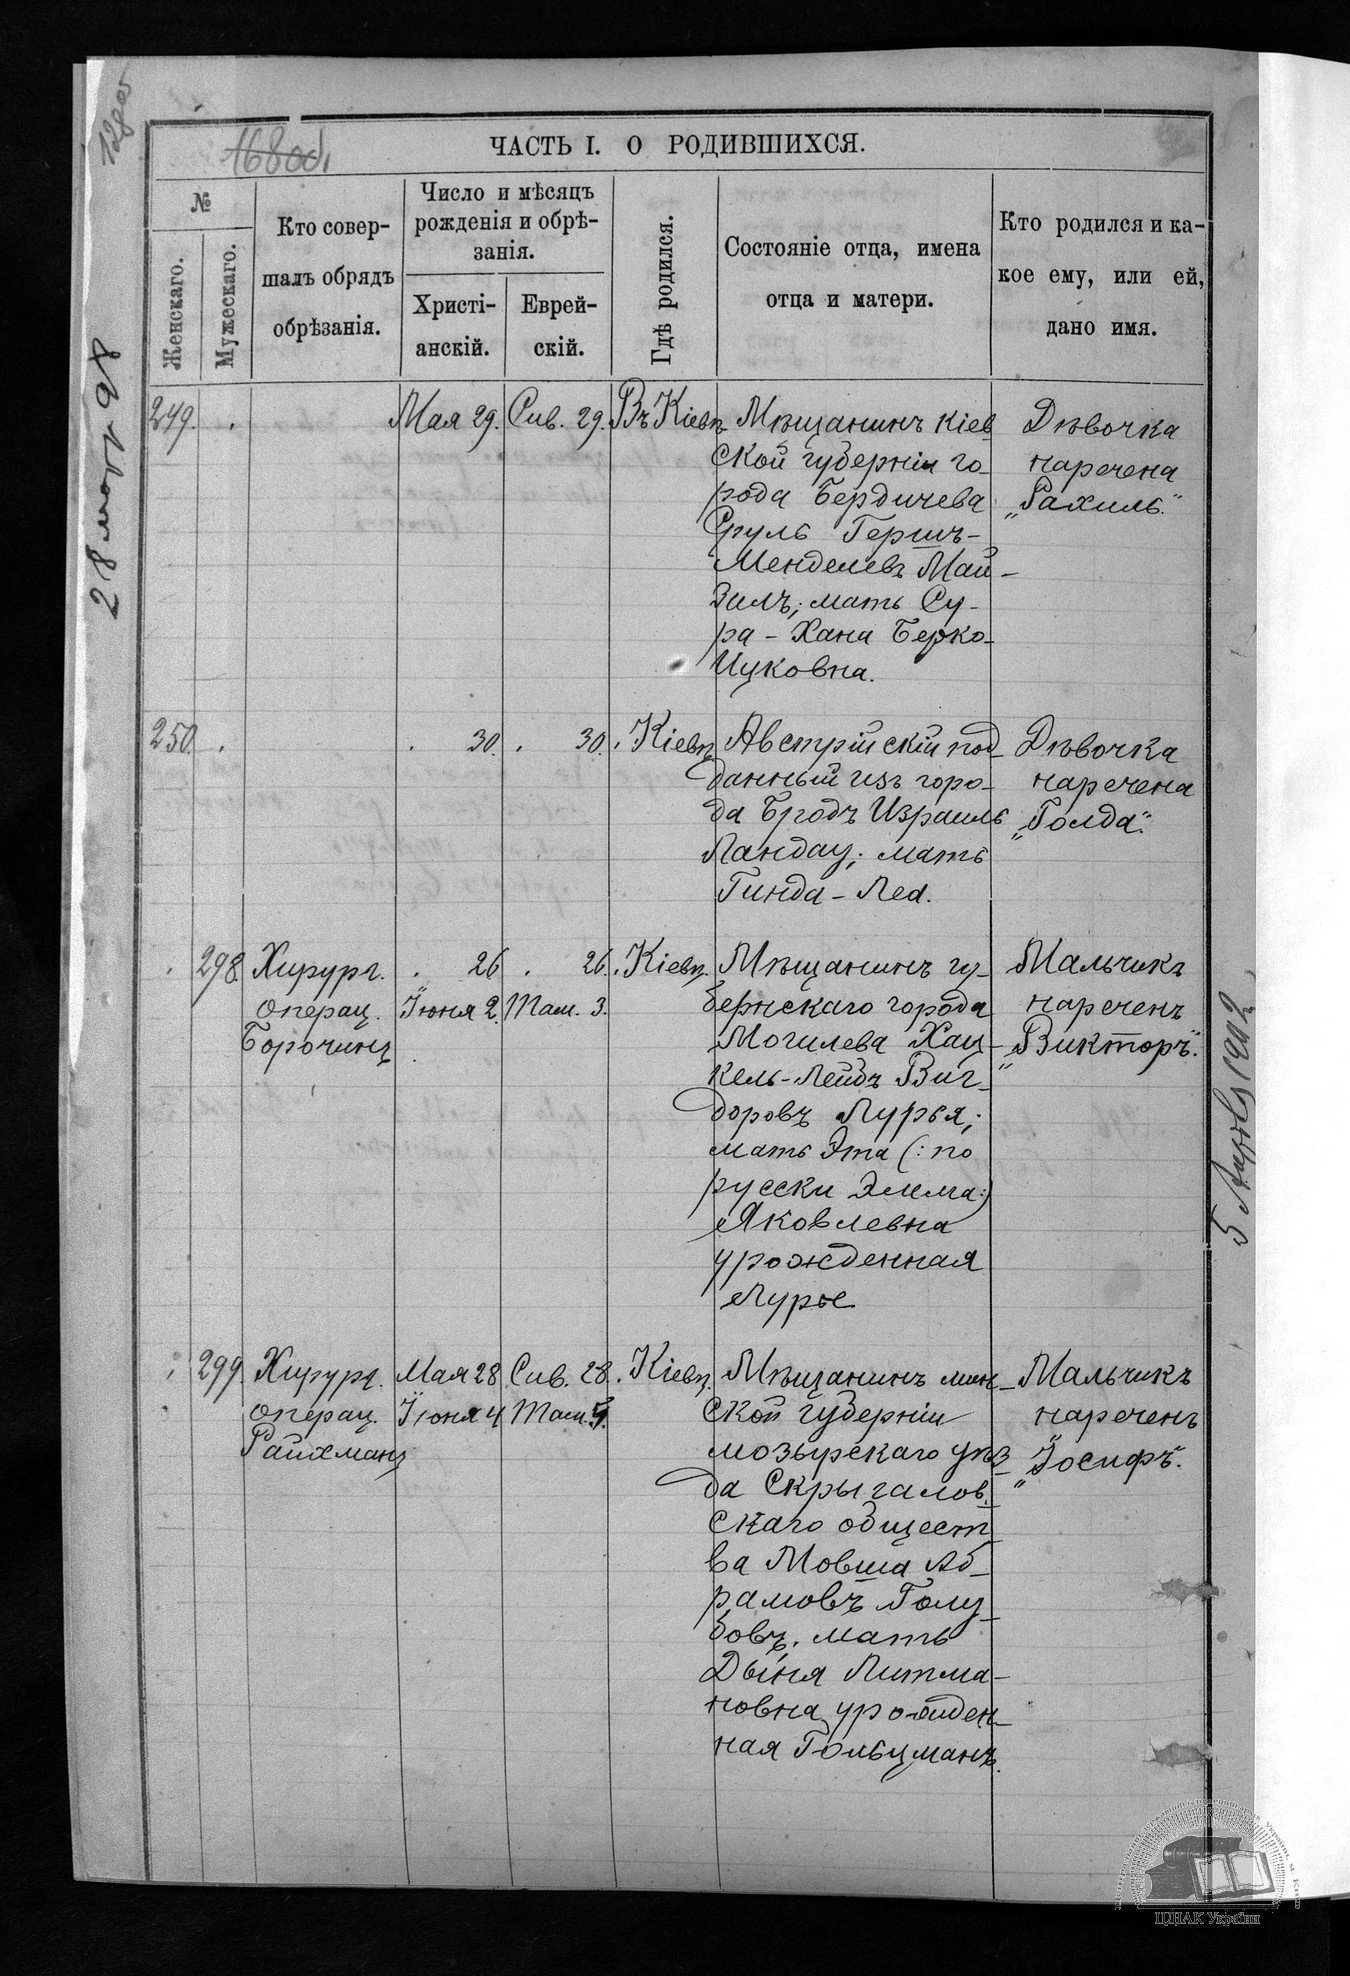 ЧАСТЬ I. О РОДИВШИХСЯ.
№
Женскаго.
Мужескаго.
Кто совер-
шалъ обрядъ
обрѣзанія.
Число и мѣсяцъ
рожденія и обрѣ-
занія.
Христі-
анскій.
Еврей-
скій.
Гдѣ родился.
Состояніе отца, имена
отца и матери.
Кто родился и ка-
кое ему, или ей,
дано имя.
249.
Мая 29.
Сив. 29.
Въ Кіевѣ
Мѣщанинъ Кіев
ской губерніи го-
рода Бердичева
Сруль Гершъ-
Менделевъ Май-
зилъ; мать Су-
ра-Хана Берко-
Ицковна.
Дѣвочка
наречена
„Рахиль."
250.
30.
30.
Кіевѣ
Австрійскій под-
данный изъ горо-
да Бродъ Израиль
Ландау; мать
Гинда-Леа.
Дѣвочка
наречена
„Голда".
298.
Хирург.
операц.
Борочинъ
26
Іюня 2.
26.
Там. 3.
Кіевѣ.
Мѣщанинъ гу-
бернскаго города
Могилева Хац-
кель-Лейбъ Виг-
доровъ Лурья;
мать Эта (: по
русски Эмма:)
Яковлевна
урожденная
Лурье
Мальчикъ
нареченъ
„Викторъ".
299.
Хирург.
операц.
Райхманъ
Мая 28
Іюня 4
Сив. 28.
Там. 5.
Кіевѣ.
Мѣщанинъ мин-
ской губерніи
мозырскаго уѣз-
да Скрыгалов-
скаго общест-
ва Мовша Аб-
рамовъ Голу-
бовъ, мать
Дыня Литма-
новна урожден-
ная Гольцманъ.
Мальчикъ
нареченъ
„Іосифъ".
ЦДІАК України